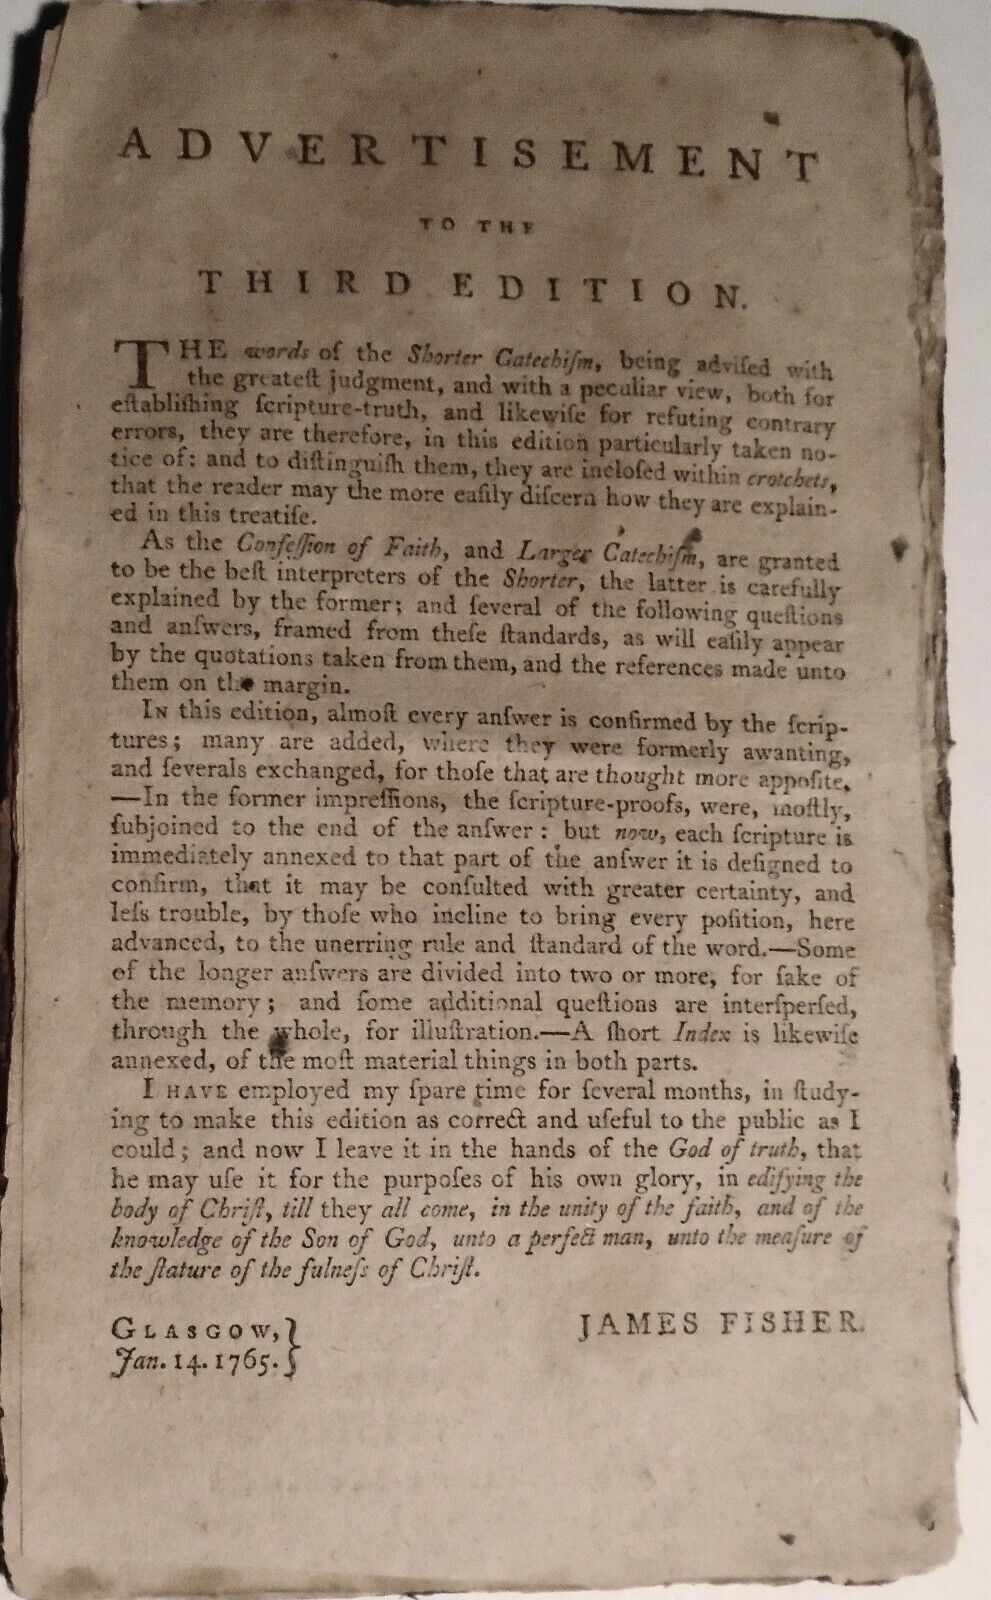 ADVERTISEMENT
TO THE
THIRD EDITION.
THE words of the Shorter Catechiſm, being adviſed with
the greateſt judgment, and with a peculiar view, both for
eſtabliſhing ſcripture-truth, and likewiſe for refuting contrary
errors, they are therefore, in this edition particularly taken no-
tice of: and to diſtinguiſh them, they are incloſed within crotchets,
that the reader may the more eaſily diſcern how they are explain-
ed in this treatiſe.
As the Confeſſion of Faith, and Larger Catechiſm, are granted
to be the beſt interpreters of the Shorter, the latter is carefully
explained by the former; and ſeveral of the following queſtions
and anſwers, framed from theſe ſtandards, as will eaſily appear
by the quotations taken from them, and the references made unto
them on the margin.
IN this edition, almoſt every anſwer is confirmed by the ſcrip-
tures; many are added, where they were formerly awanting,
and ſeverals exchanged, for thoſe that are thought more appoſite.
—In the former impreſſions, the ſcripture-proofs, were, moſtly,
ſubjoined to the end of the anſwer: but now, each ſcripture is
immediately annexed to that part of the anſwer it is deſigned to
confirm, that it may be conſulted with greater certainty, and
leſs trouble, by thoſe who incline to bring every poſition, here
advanced, to the unerring rule and ſtandard of the word.—Some
of the longer anſwers are divided into two or more, for ſake of
the memory; and ſome additional queſtions are interſperſed,
through the whole, for illuſtration.—A ſhort Index is likewiſe
annexed, of the moſt material things in both parts.
I HAVE employed my ſpare time for ſeveral months, in ſtudy-
ing to make this edition as correct and uſeful to the public as I
could; and now I leave it in the hands of the God of truth, that
he may uſe it for the purpoſes of his own glory, in edifying the
body of Chriſt, till they all come, in the unity of the faith, and of the
knowledge of the Son of God, unto a perfect man, unto the meaſure of
the ſtature of the fulneſs of Chriſt.
GLASGOW,}
Jan. 14. 1765.}
JAMES FISHER.